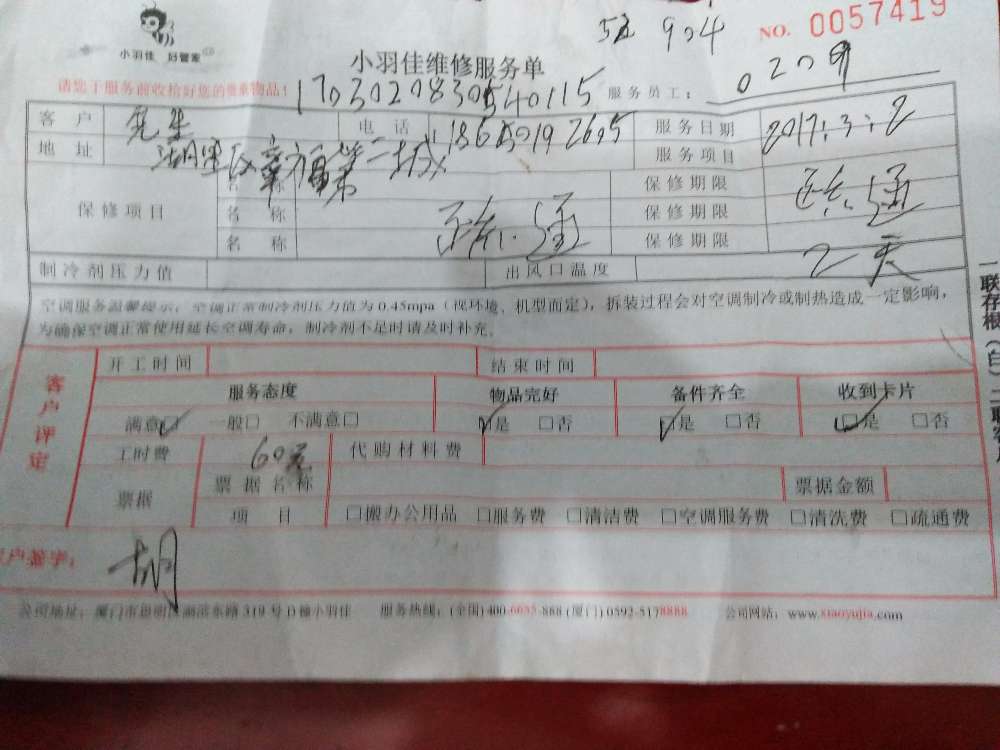 904 NO. 0057419
小羽佳 好管家
小羽佳维修服务单
请您于服务前收拾好您的贵重物品! 服务员工: 0209
客户 先生 电话 18650192605 服务日期 2017.3.2
地址 湖里区 服务项目
保修项目 名称 保修期限
名称 保修期限
名称 保修期限 2天
制冷剂压力值 出风口温度
空调服务温馨提示:空调正常制冷剂压力值为0.45mpa(视环境、机型而定),拆装过程会对空调制冷或制热造成一定影响,
为确保空调正常使用延长空调寿命,制冷剂不足时请及时补充。
客户评定 开工时间 结束时间
服务态度 物品完好 备件齐全 收到卡片
满意□ 一般□ 不满意□ □是 □否 □是 □否 □是 □否
工时费 60元 代购材料费
票据 票据名称 票据金额
项目 □搬办公用品 □服务费 □清洁费 □空调服务费 □清洗费 □疏通费
客户签字: 胡
公司地址:厦门市思明区湖滨东路319号D幢小羽佳 服务热线:(全国)400-6655-888(厦门)0592-5178888 公司网站:www.xiaoyujia.com
一联存根(白)二联客户